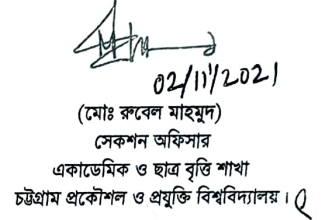 02/11/2021
(মোঃ রুবেল মাহমুদ)
সেকশন অফিসার
একাডেমিক ও ছাত্র বৃত্তি শাখা
চট্টগ্রাম প্রকৌশল ও প্রযুক্তি বিশ্ববিদ্যালয়।